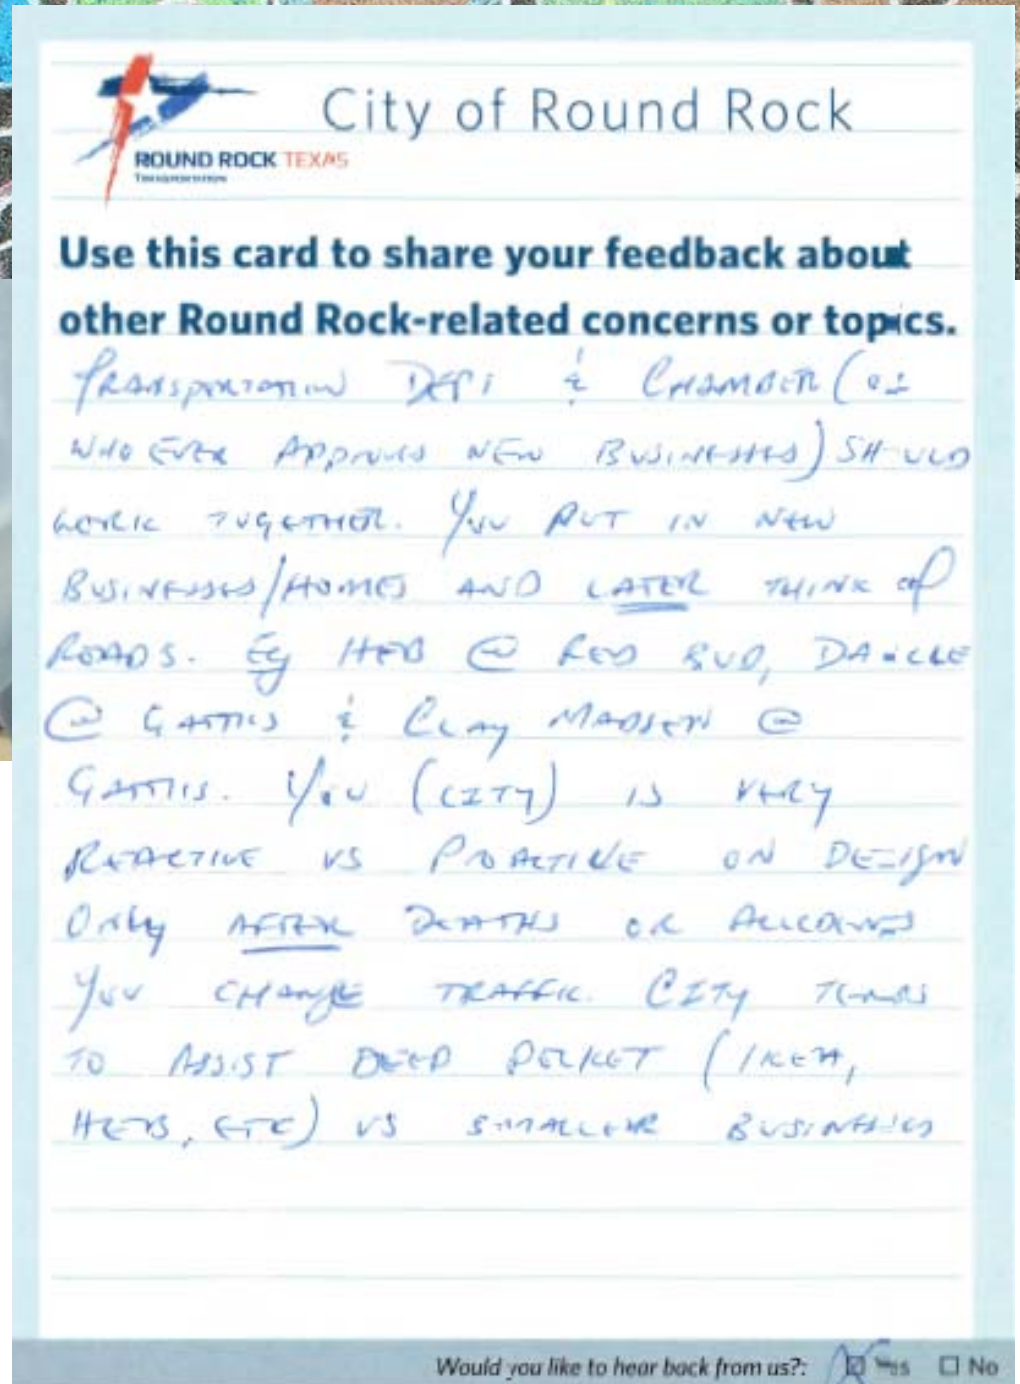 City of Round Rock
ROUND ROCK TEXAS
TRANSPORTATION
Use this card to share your feedback about
other Round Rock-related concerns or topics.
TRANSPORTATION DEPT & CHAMBER (OR
WHO EVER APPROVES NEW BUSINESSES) SHOULD
WORK TOGETHER. YOU PUT IN NEW
BUSINESSES/HOMES AND LATER THINK OF
ROADS. Eg HEB @ RED BUD,
@ GATTIS & CLAY MADSEN @
GATTIS. YOU (CITY) IS VERY
REACTIVE VS PROACTIVE ON DESIGN
ONLY AFTER DEATHS OR
YOU CHANGE TRAFFIC. CITY TENDS
TO ASSIST DEEP POCKET (IKEA,
HEB, ETC) VS SMALLER BUSINESSES
Would you like to hear back from us?: Yes No